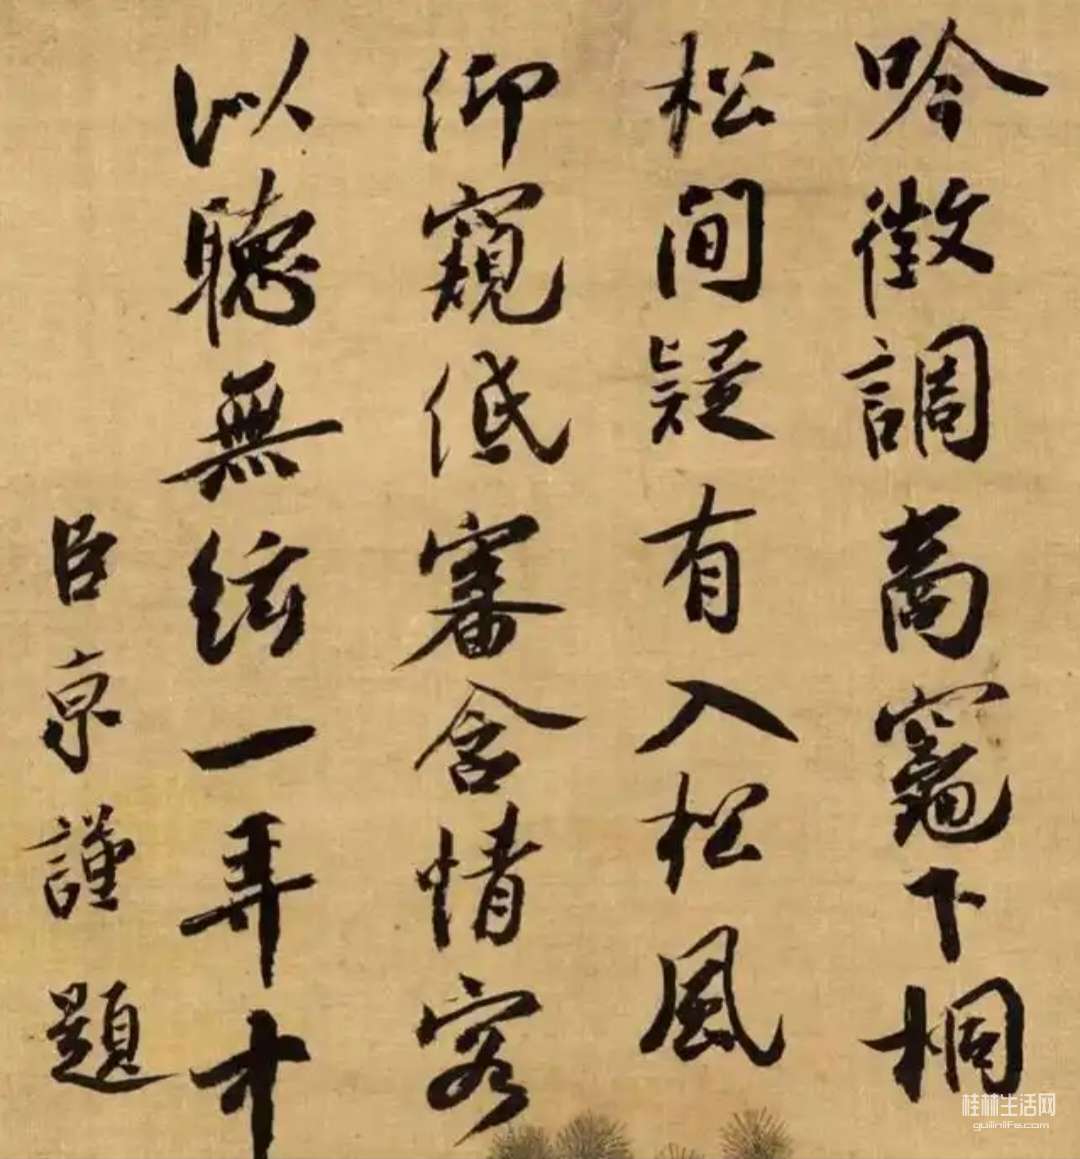 吟徵調商竈下桐
松間疑有入松風
仰窺低審含情客
以聽無絃一弄中
臣京謹題
桂林生活网
guilinlife.com